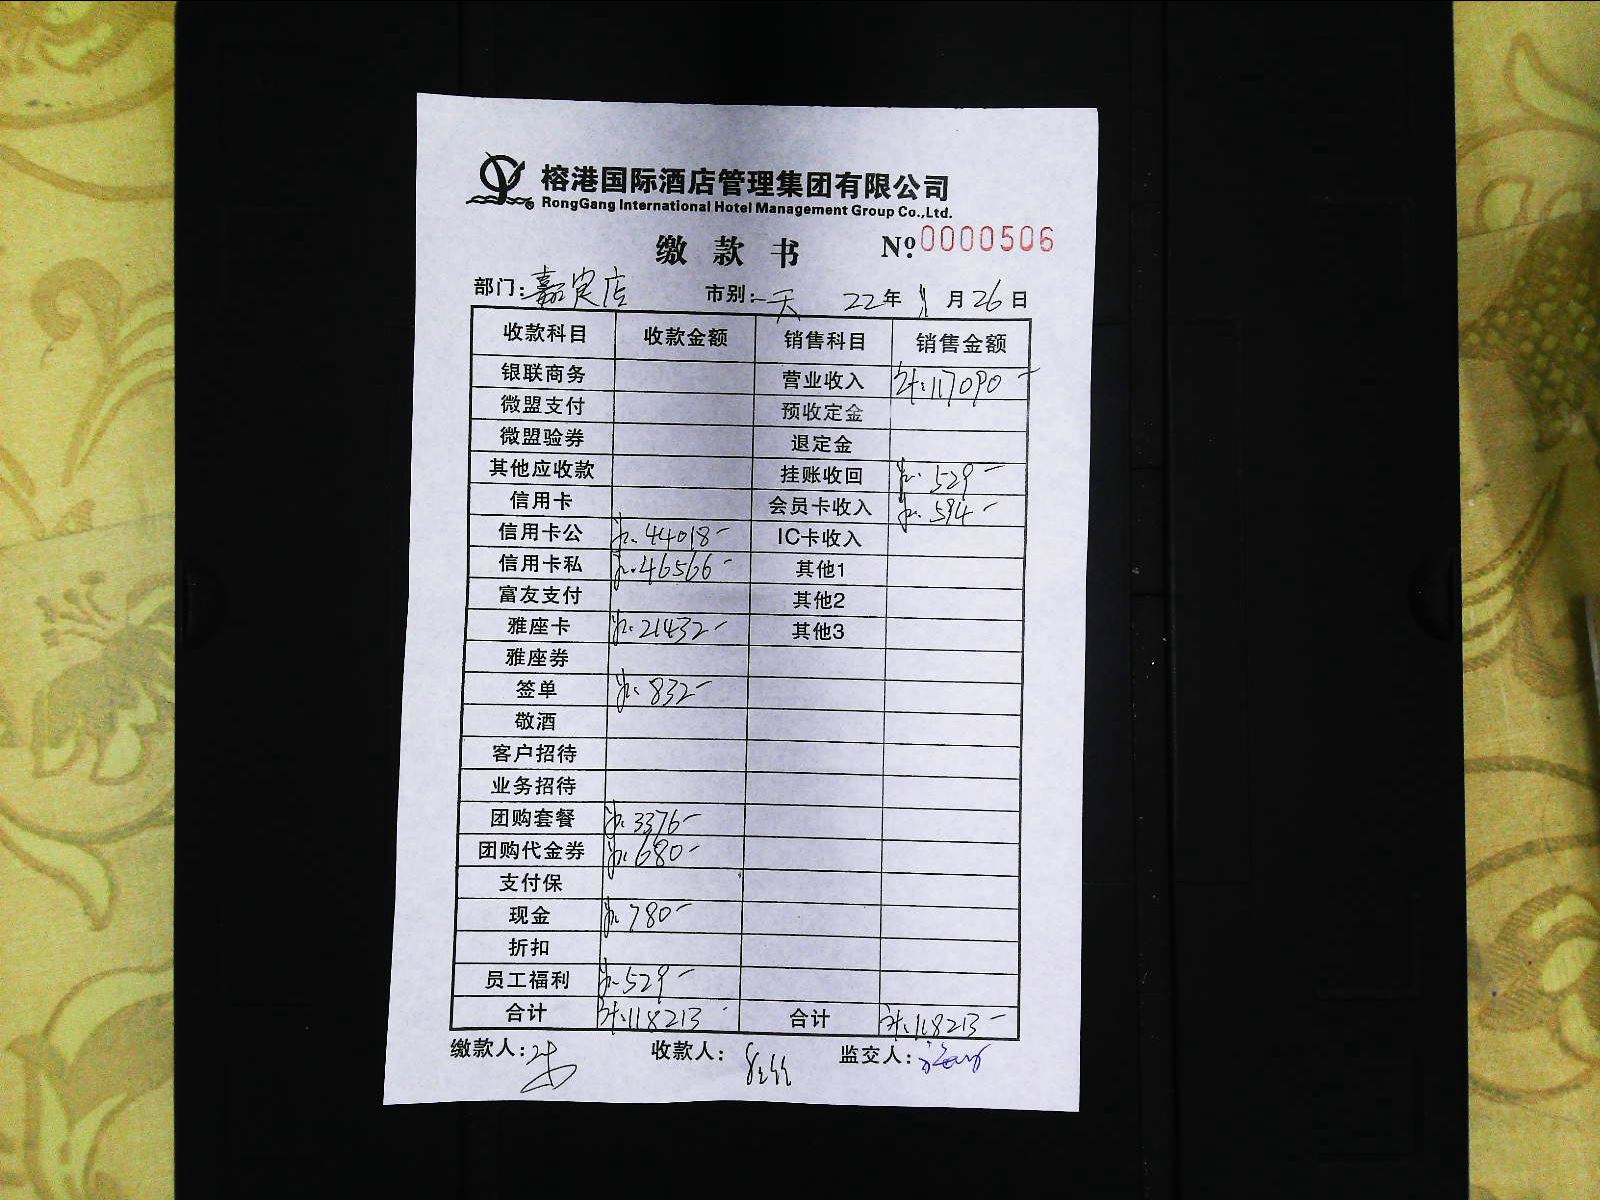 榕港国际酒店管理集团有限公司
RongGang International Hotel Management Group Co.,Ltd.
缴款书 Nº:0000506
部门: 店 市别:一天 22年 月26日
收款科目 收款金额 销售科目 销售金额
银联商务 营业收入 计:117090-
微盟支付 预收定金
微盟验券 退定金
其他应收款 挂账收回 529-
信用卡 会员卡收入 594-
信用卡公 44018- IC卡收入
信用卡私 46566- 其他1
富友支付 其他2
雅座卡 21432- 其他3
雅座券
签单 832-
敬酒
客户招待
业务招待
团购套餐 3376-
团购代金券 680-
支付保
现金 780-
折扣
员工福利 529-
合计 计:118213- 合计 计:118213-
缴款人: 收款人: 监交人: